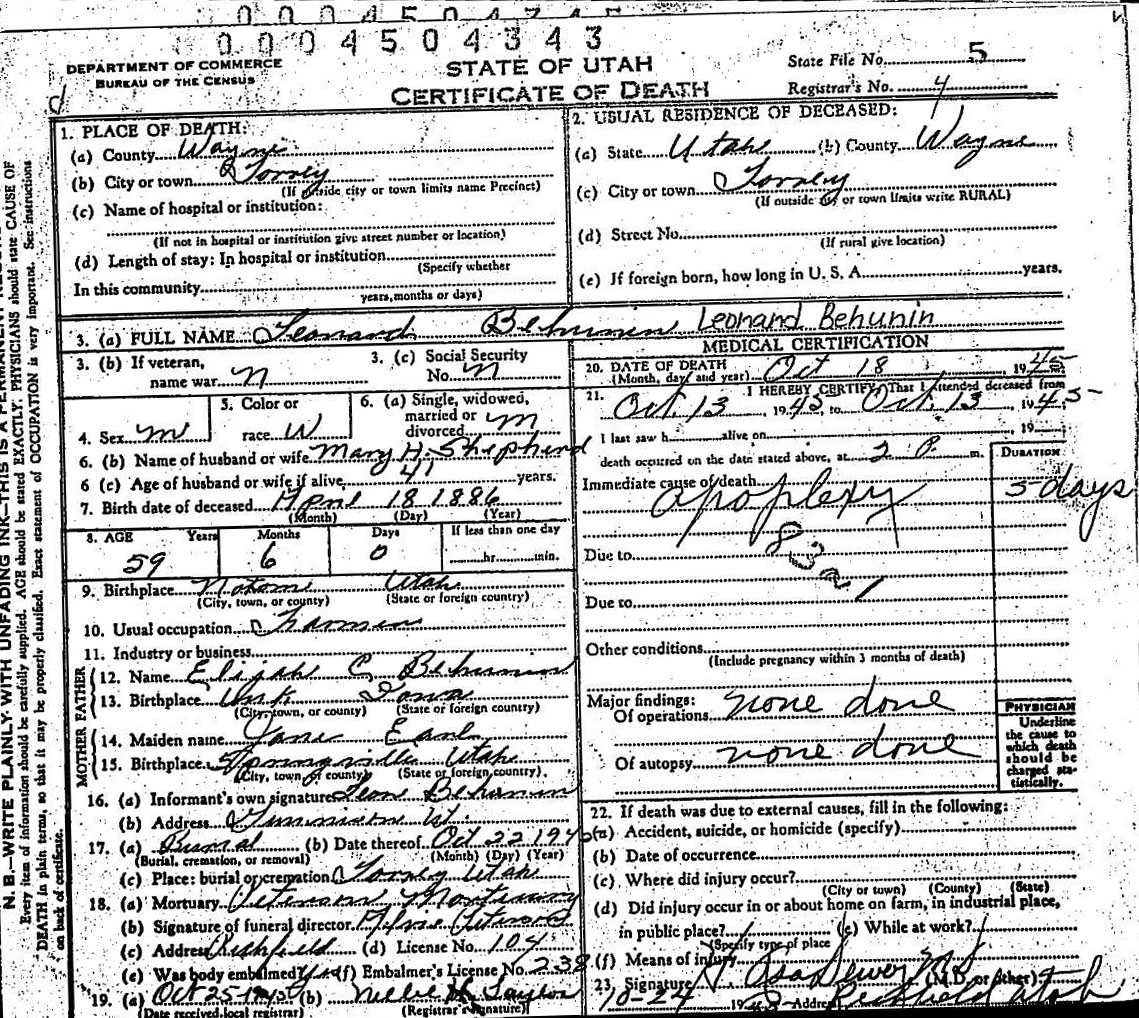 0004504343
DEPARTMENT OF COMMERCE
BUREAU OF THE CENSUS
STATE OF UTAH
CERTIFICATE OF DEATH
State File No. 5
Registrar's No. 4
N. B.—WRITE PLAINLY WITH UNFADING INK—THIS IS A PERMANENT
Every item of information should be carefully supplied. AGE should be stated EXACTLY. PHYSICIANS should state CAUSE OF
DEATH in plain terms, so that it may be properly classified. Exact statement of OCCUPATION is very important. See instructions
on back of certificate.
1. PLACE OF DEATH:
(a) County Wayne
(b) City or town Torrey
(If outside city or town limits name Precinct)
(c) Name of hospital or institution:
(If not in hospital or institution give street number or location)
(d) Length of stay: In hospital or institution
(Specify whether
In this community
years, months or days)
2. USUAL RESIDENCE OF DECEASED:
(a) State Utah (b) County Wayne
(c) City or town Torrey
(If outside city or town limits write RURAL)
(d) Street No.
(If rural give location)
(e) If foreign born, how long in U. S. A. years.
3. (a) FULL NAME Leonard Behunin Leonand Behunin
3. (b) If veteran,
name war n
3. (c) Social Security
No. n
4. Sex m
5. Color or
race W
6. (a) Single, widowed,
married or
divorced m
6. (b) Name of husband or wife Mary H. Shepherd
6 (c) Age of husband or wife if alive, 41 years.
7. Birth date of deceased April 18 1886
(Month) (Day) (Year)
8. AGE Years Months Days If less than one day
59 6 0 hr. min.
9. Birthplace Notom Utah
(City, town, or county) (State or foreign country)
10. Usual occupation Farmer
11. Industry or business
FATHER
12. Name Elijah C. Behunin
13. Birthplace Unk Iowa
(City, town, or county) (State or foreign country)
MOTHER
14. Maiden name Jane Earl
15. Birthplace Springville Utah
(City, town, or county) (State or foreign country)
16. (a) Informant's own signature Leon Behunin
(b) Address Gunnison Ut.
17. (a) Burial (b) Date thereof Oct 22 194
(Burial, cremation, or removal) (Month) (Day) (Year)
(c) Place: burial or cremation Torrey Utah
18. (a) Mortuary Peterson Mortuary
(b) Signature of funeral director Peterson
(c) Address Richfield (d) License No. 104
(e) Was body embalmed? Yes (f) Embalmer's License No. 238
19. (a) Oct 25-1945 (b) Nellie H. Taylor
(Date received, local registrar) (Registrar's signature)
MEDICAL CERTIFICATION
20. DATE OF DEATH
(Month, day and year) Oct 18 1945
21. I HEREBY CERTIFY, That I attended deceased from
Oct. 13, 1945 to Oct. 13 1945
I last saw h alive on 19
death occurred on the date stated above, at 2 P. m.
DURATION
Immediate cause of death
apoplexy 5 days
Due to
83a1
Due to
Other conditions
(Include pregnancy within 3 months of death)
Major findings:
Of operations none done
Of autopsy none done
PHYSICIAN
Underline
the cause to
which death
should be
charged sta-
tistically.
22. If death was due to external causes, fill in the following:
(a) Accident, suicide, or homicide (specify)
(b) Date of occurrence
(c) Where did injury occur?
(City or town) (County) (State)
(d) Did injury occur in or about home on farm, in industrial place,
in public place? (e) While at work?
(Specify type of place
(f) Means of injury
23. Signature Asa Dewey (M.D. or other)
10-24 19 Address Richfield Utah